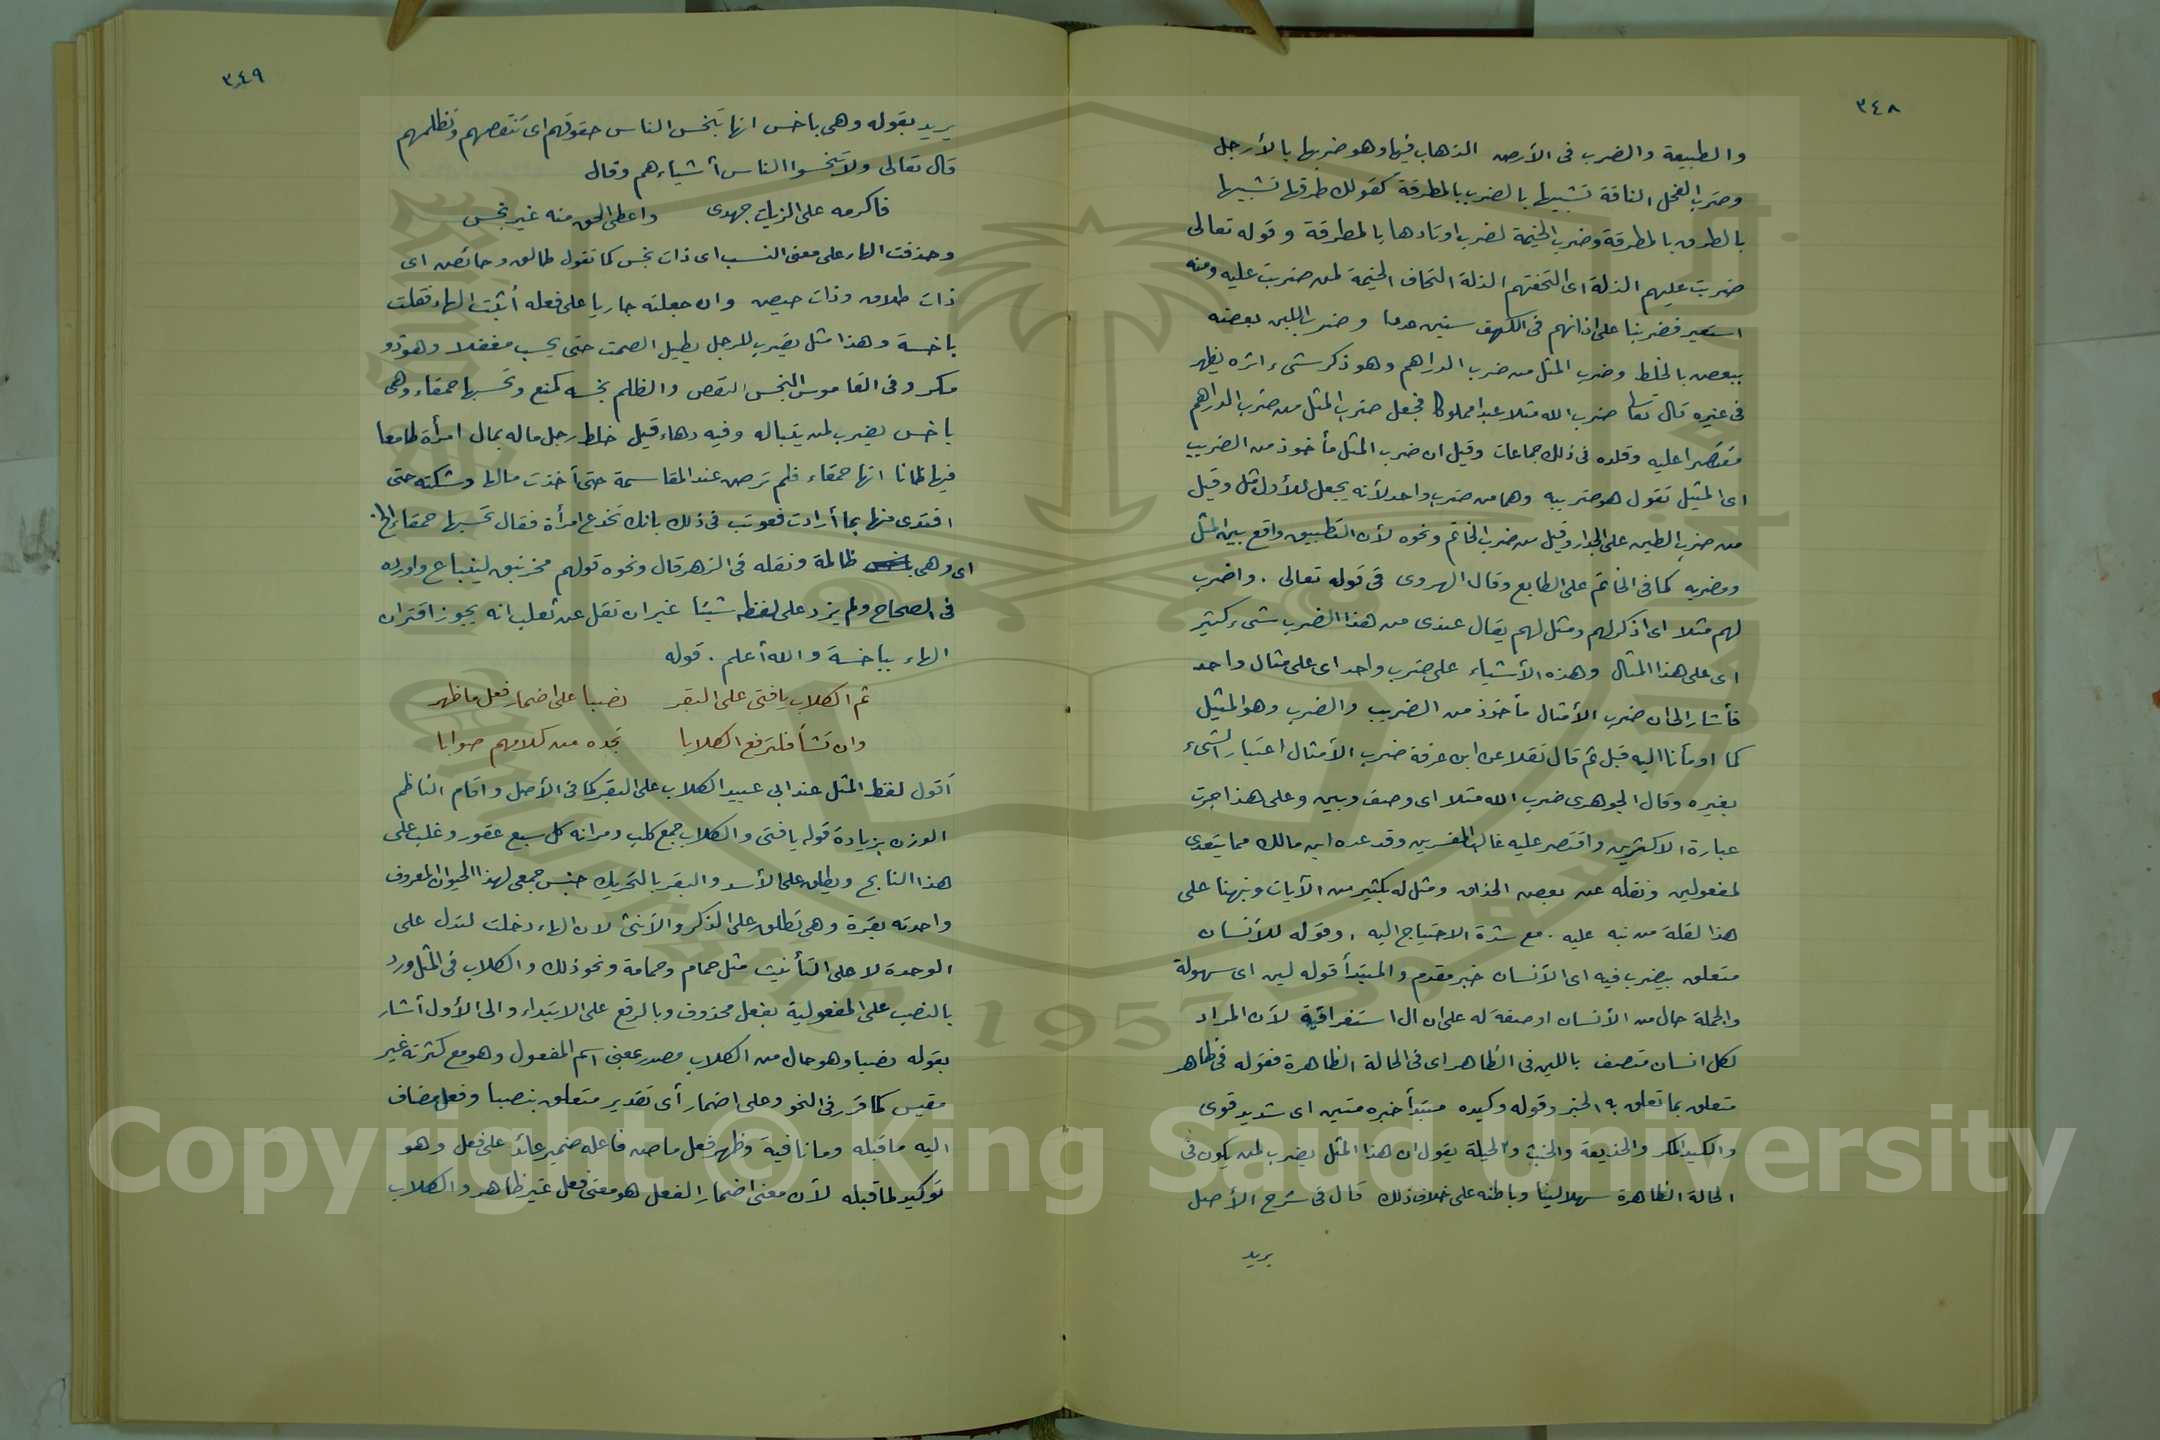 ٣٤٨
والطبيعة والضرب فى الأرض الذهاب فيها وهو ضربها بالأرجل
وضرب الفحل الناقة تشبيها بالضرب بالمطرقة كقولك طرقها تشبيها
بالطرق بالمطرقة وضرب الخيمة لضرب اوتادها بالمطرقة وقوله تعالى
ضربت عليهم الذلة اى التحفتهم الذلة التحاف الخيمة لمن ضربت عليه ومنه
استعير فضربنا على اذانهم فى الكهف سنين عددا وضرب اللبن بعضه
ببعض بالخلط وضرب المثل من ضرب الدراهم وهو ذكر شىء اثره يظهر
فى غيره قال تعالى ضرب الله مثلا عبدا مملوكا فجعل ضرب المثل من ضرب الدراهم
مقتصرا عليه وقلده فى ذلك جماعات وقيل ان ضرب المثل مأخوذ من الضريب
اى المثيل تقول هو ضريبه وهما من ضرب واحد لأنه يجعل للأول مثل وقيل
من ضرب الطين على الجدار وقيل من ضرب الخاتم ونحوه لأن التطبيق واقع بين المثل
ومضربه كما فى الخاتم على الطابع وقال الهروى فى قوله تعالى . واضرب
لهم مثلا اى اذكر لهم ومثل لهم يقال عندى من هذا الضرب شىء كثير
اى على هذا المثال وهذه الأشياء على ضرب واحد اى على مثال واحد
فأشار الى ان ضرب الأمثال مأخوذ من الضريب والضرب وهو المثيل
كما اومأنا اليه قبل ثم قال نقلا عن ابن عرفة ضرب الأمثال اعتبار الشىء
بغيره وقال الجوهرى ضرب الله مثلا اى وصف وبين وعلى هذا جرت
عبارة الاكثرين واقتصر عليه غالب المفسرين وقد عده ابن مالك مما يتعدى
لمفعولين ونقله عن بعض الحذاق ومثل له بكثير من الآيات ونبهنا على
هذا لقلة من نبه عليه . مع شدة الاحتياج اليه . وقوله للأنسان
متعلق بيضرب فيه اى الأنسان خبر مقدم والمبتدأ قوله لين اى سهولة
والجملة حال من الأنسان او صفة له على ان ال استغراقية لأن المراد
لكل انسان متصف باللين فى الظاهر اى فى الحالة الظاهرة فقوله فى ظاهر
متعلق بما تعلق به الخبر وقوله وكيده مبتدأ خبره متين اى شديد قوى
والكيد المكر والخديعة والخبث والحيلة يقول ان هذا المثل يضرب لمن يكون فى
الحالة الظاهرة سهلا لينا وباطنه على خلاف ذلك قال فى شرح الأصل
يريد
٣٤٩
يريد بقوله وهى باخس انها تبخس الناس حقوقهم اى تنقصهم وتظلمهم
قال تعالى ولا تبخسوا الناس أشياءهم وقال
فاكرمه على الزيات جهدى واعطى الحق منه غير بخس
وحذفت الهاء على معنى النسب اى ذات بخس كما تقول طالق وحائض اى
ذات طلاق وذات حيض وان جعلته جاريا على فعله أثبت الهاء فقلت
باخسة وهذا مثل يضرب للرجل يطيل الصمت حتى يحسب مغفلا وهو ذو
مكر وفى القاموس البخس النقص والظلم بخسه كمنع وتحسبها حمقاء وهى
باخس يضرب لمن يتباله وفيه دهاء قيل خلط رجل ماله بمال امرأة طامعا
فيها ظانا انها حمقاء فلم ترض عند المقاسمة حتى أخذت مالها وشكته حتى
افتدى منها بما أرادت فعوتب فى ذلك بانك تخدع امرأة فقال تحسبها حمقاء الخ
اى وهى ظالمة ونقله فى الزهر قال ونحوه قولهم مخرنبق لينباع واورده
فى الصحاح ولم يزد على لفظه شيئا غير ان نقل عن ثعلب انه يجوز اقتران
الهاء بباخسة والله أعلم . قوله
ثم الكلاب يافتى على البقر نصبا على اضمار فعل ما ظهر
وان تشأ فلترفع الكلابا تجده من كلامهم صوابا
أقول لفظ المثل عند ابى عبيد الكلاب على البقر كما فى الأصل واقام الناظم
الوزن بزيادة قوله يافتى والكلاب جمع كلب ومر انه كل سبع عقور وغلب على
هذا النابح ويطلق على الأسد والبقر بالتحريك جنس جمعى لهذا الحيوان المعروف
واحدته بقرة وهى تطلق على الذكر والأنثى لان الهاء دخلت لتدل على
الوحدة لا على التأنيث مثل حمام وحمامة ونحو ذلك والكلاب فى المثل ورد
بالنصب على المفعولية بفعل محذوف وبالرفع على الابتداء والى الأول أشار
بقوله نصبا وهو حال من الكلاب مصدر بمعنى اسم المفعول وهو مع كثرته غير
مقيس كما قرر فى النحو وعلى اضمار أى تقدير متعلق بنصبا وفعل مضاف
اليه ما قبله وما نافية وظهر فعل ماض فاعله ضمير عائد على فعل وهو
توكيد لما قبله لأن معنى اضمار الفعل هو معنى فعل غير ظاهر والكلاب
1957
Copyright © King Saud University